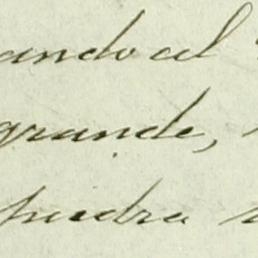 ando al
grande,
piedra